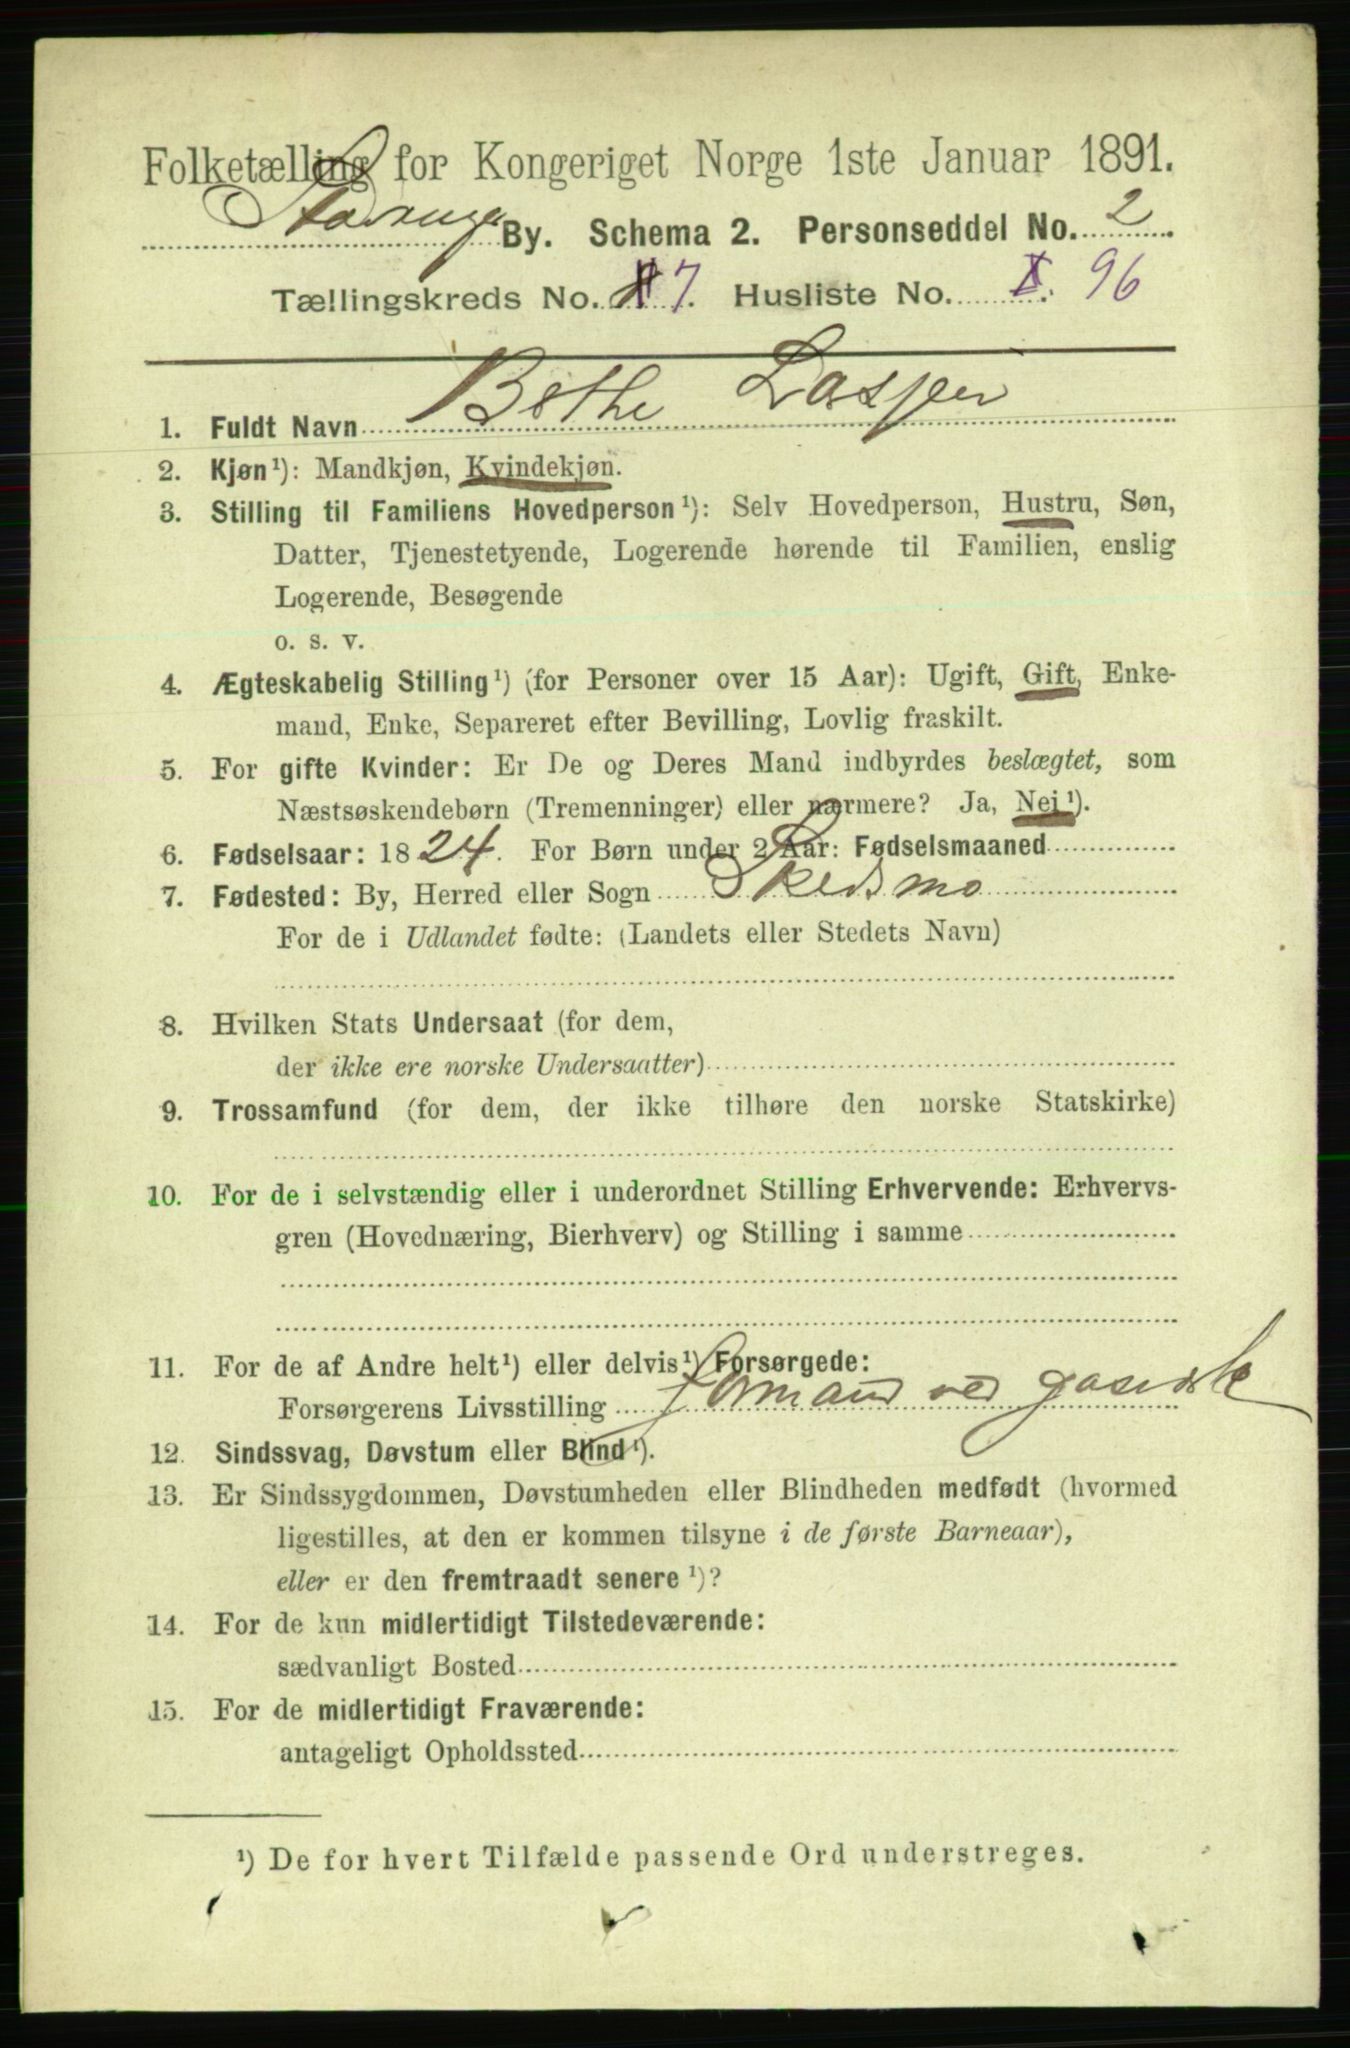 Folketælling for Kongeriget Norge 1ste Januar 1891.
Stavanger By. Schema 2. Personseddel No. 2
Tællingskreds No. 7. Husliste No. 96
1. Fuldt Navn Bothe Lasper
2. Kjøn¹): Mandkjøn, Kvindekjøn.
3. Stilling til Familiens Hovedperson¹): Selv Hovedperson, Hustru, Søn,
Datter, Tjenestetyende, Logerende hørende til Familien, enslig
Logerende, Besøgende
o. s. v.
4. Ægteskabelig Stilling¹) (for Personer over 15 Aar): Ugift, Gift, Enke-
mand, Enke, Separeret efter Bevilling, Lovlig fraskilt.
5. For gifte Kvinder: Er De og Deres Mand indbyrdes beslægtet, som
Næstsøskendebørn (Tremenninger) eller nærmere? Ja, Nei¹).
6. Fødselsaar: 1824. For Børn under 2 Aar: Fødselsmaaned
7. Fødested: By, Herred eller Sogn Skedsmo
For de i Udlandet fødte: (Landets eller Stedets Navn)
8. Hvilken Stats Undersaat (for dem,
der ikke ere norske Undersaatter)
9. Trossamfund (for dem, der ikke tilhøre den norske Statskirke)
10. For de i selvstændig eller i underordnet Stilling Erhvervende: Erhvervs-
gren (Hovednæring, Bierhverv) og Stilling i samme
11. For de af Andre helt¹) eller delvis¹) Forsørgede:
Forsørgerens Livsstilling Formand ved
12. Sindssvag, Døvstum eller Blind¹).
13. Er Sindssygdommen, Døvstumheden eller Blindheden medfødt (hvormed
ligestilles, at den er kommen tilsyne i de første Barneaar),
eller er den fremtraadt senere¹)?
14. For de kun midlertidigt Tilstedeværende:
sædvanligt Bosted
15. For de midlertidigt Fraværende:
antageligt Opholdssted
¹) De for hvert Tilfælde passende Ord understreges.